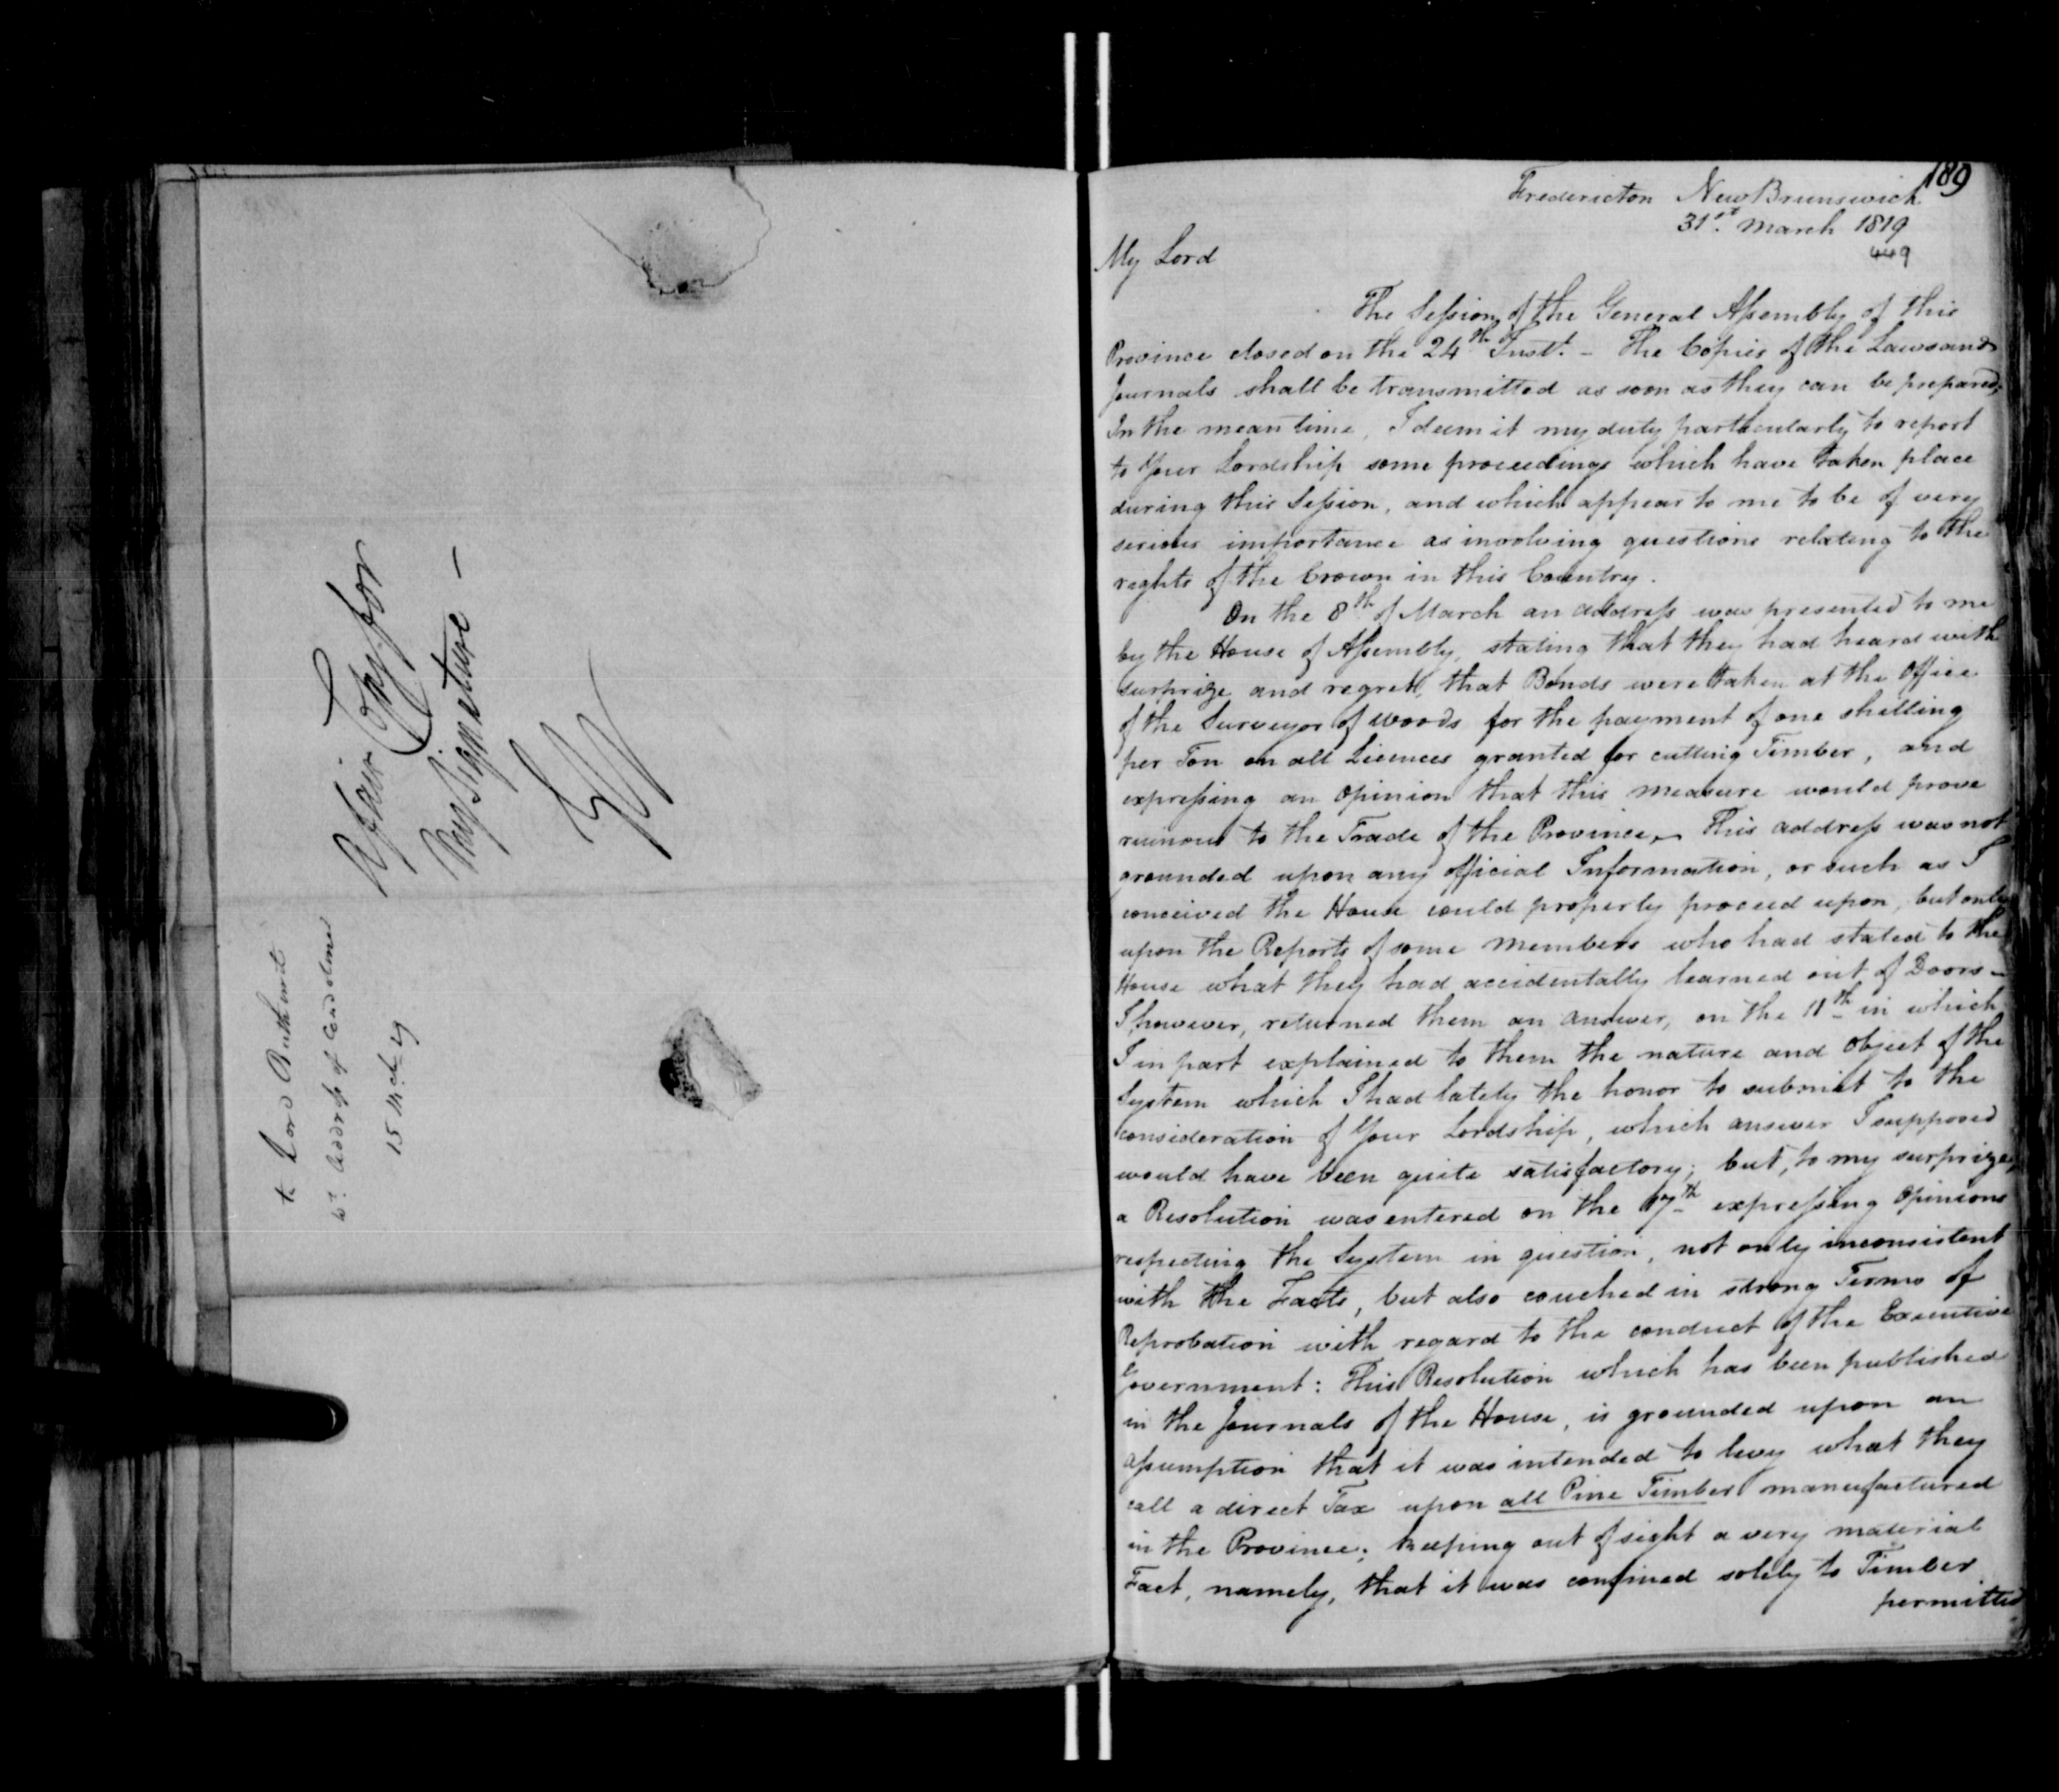 to Lord Bathurst
wt. Address of Condolence
15 Mch 19
A fair Copy for
my Signature —
189
Fredericton New Brunswick
31st. March 1819
449
My Lord
The Session of the General Assembly of this
Province closed on the 24th Inst. - The Copies of the Laws and
Journals shall be transmitted as soon as they can be prepared;
In the mean time, I deem it my duty particularly to report
to Your Lordship some proceedings which have taken place
during this Session, and which appear to me to be of very
serious importance as involving questions relating to the
rights of the Crown in this Country.
On the 8th of March an address was presented to me
by the House of Assembly, stating that they had heard with
surprize and regret, that Bonds were taken at the Office
of the Surveyor of Woods for the payment of one shilling
per Ton on all Licences granted for cutting Timber, and
expressing an Opinion that this measure would prove
ruinous to the Trade of the Province, - This address was not
grounded upon any official Information, or such as I
conceived the House could properly proceed upon, but only
upon the Reports of some Members who had stated to the
House what they had accidentally learned out of Doors -
I however, returned them an answer, on the 11th in which
I in part explained to them the nature and object of the
System which I had lately the honor to submit to the
consideration of Your Lordship, which answer I supposed
would have been quite satisfactory; but, to my surprize,
a Resolution was entered on the 17th expressing Opinions
respecting the System in question, not only inconsistent
with the Facts, but also couched in strong Terms of
Reprobation with regard to the conduct of the Executive
Government: This Resolution which has been published
in the Journals of the House, is grounded upon an
assumption that it was intended to levy what they
call a direct Tax upon all Pine Timber manufactured
in the Province; keeping out of sight a very material
Fact, namely, that it was confined solely to Timber
permitted